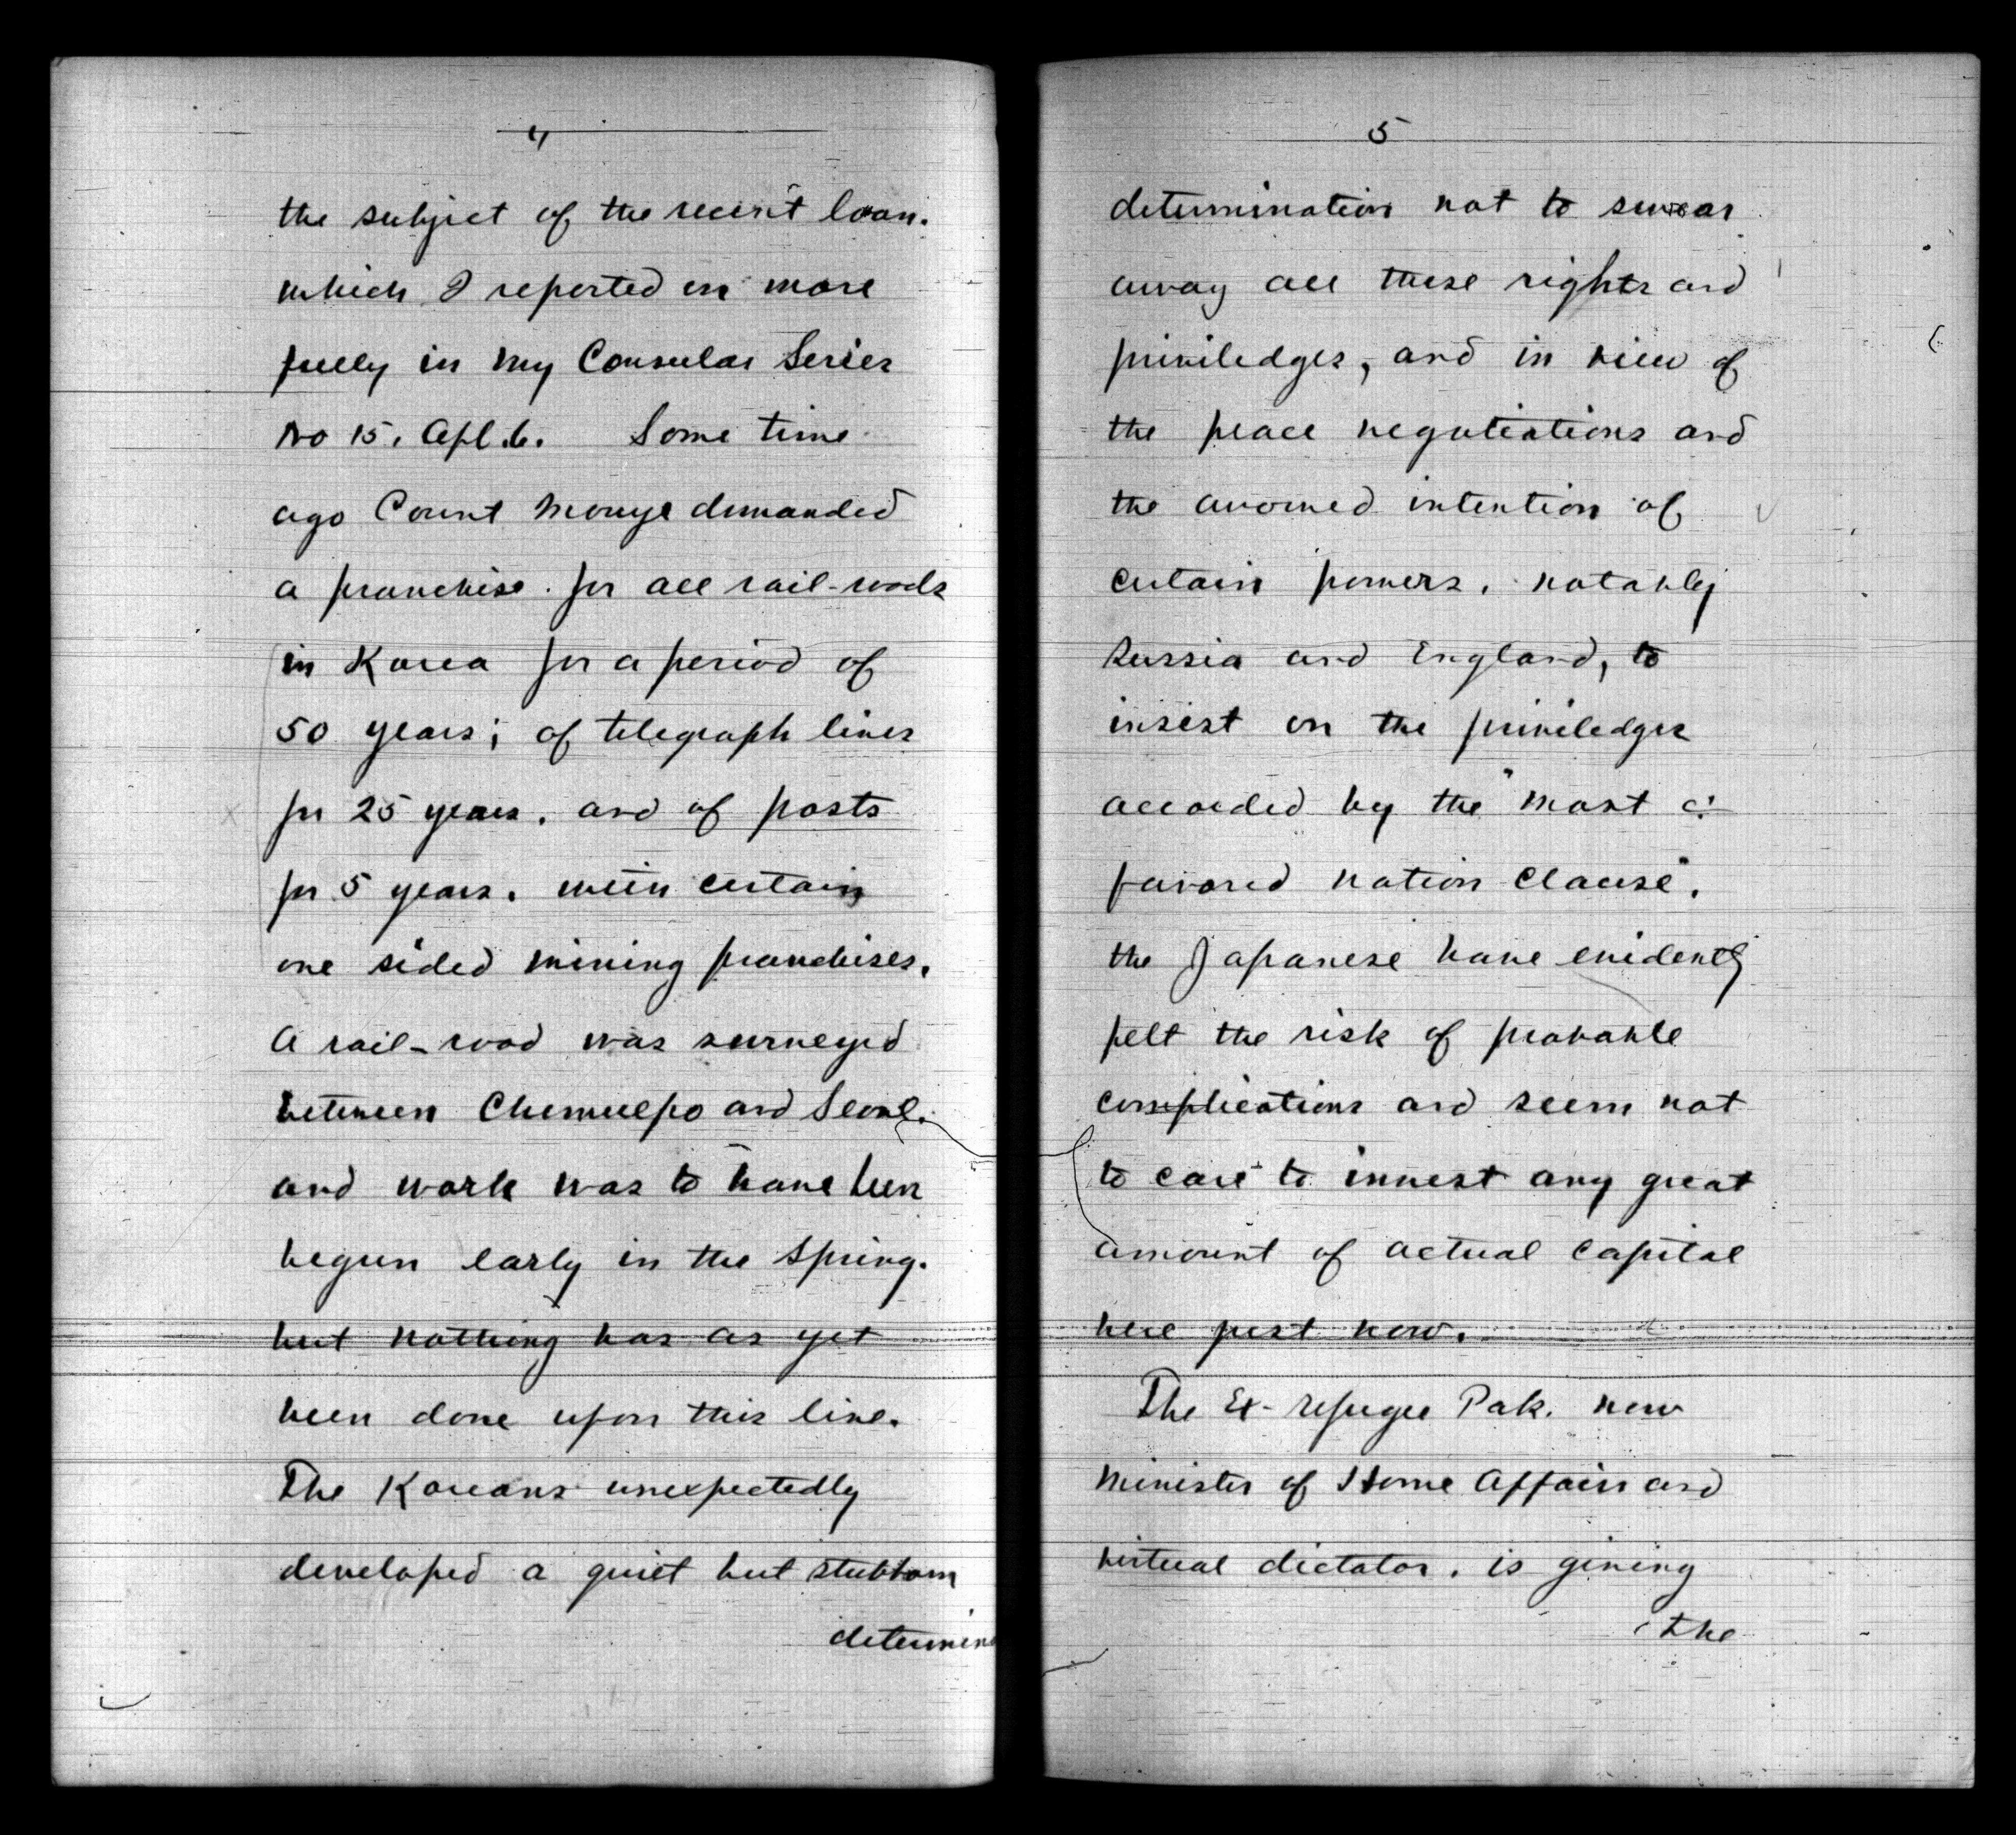 4
the subject of the recent loan.
which I reported on more
fully in my Consular Series
No 15. Apl. 6. Some time
ago Count Inouye demanded
a franchise for all rail-roads
in Korea for a period of
50 years; of telegraph lines
for 25 years, and of posts
for 5 years. with certain
one sided mining franchises.
A rail-road was surveyed
between Chemulpo and Seoul.
and work was to have been
begun early in the Spring.
but nothing has as yet
been done upon this line.
The Koreans unexpectedly
developed a quiet but stubborn
determina
5
determination not to swear
away all these rights and
priviledges, and in view of
the peace negotiations and
the avowed intention of
certain powers, notably
Russia and England, to
insist on the priviledges
accorded by the "most
favored nation clause".
the Japanese have evidently
felt the risk of probable
complications and seem not
to care to invest any great
amount of actual capital
here just now.
The Ex-refugee Pak. now
Minister of Home Affairs and
virtual dictator. is giving
the